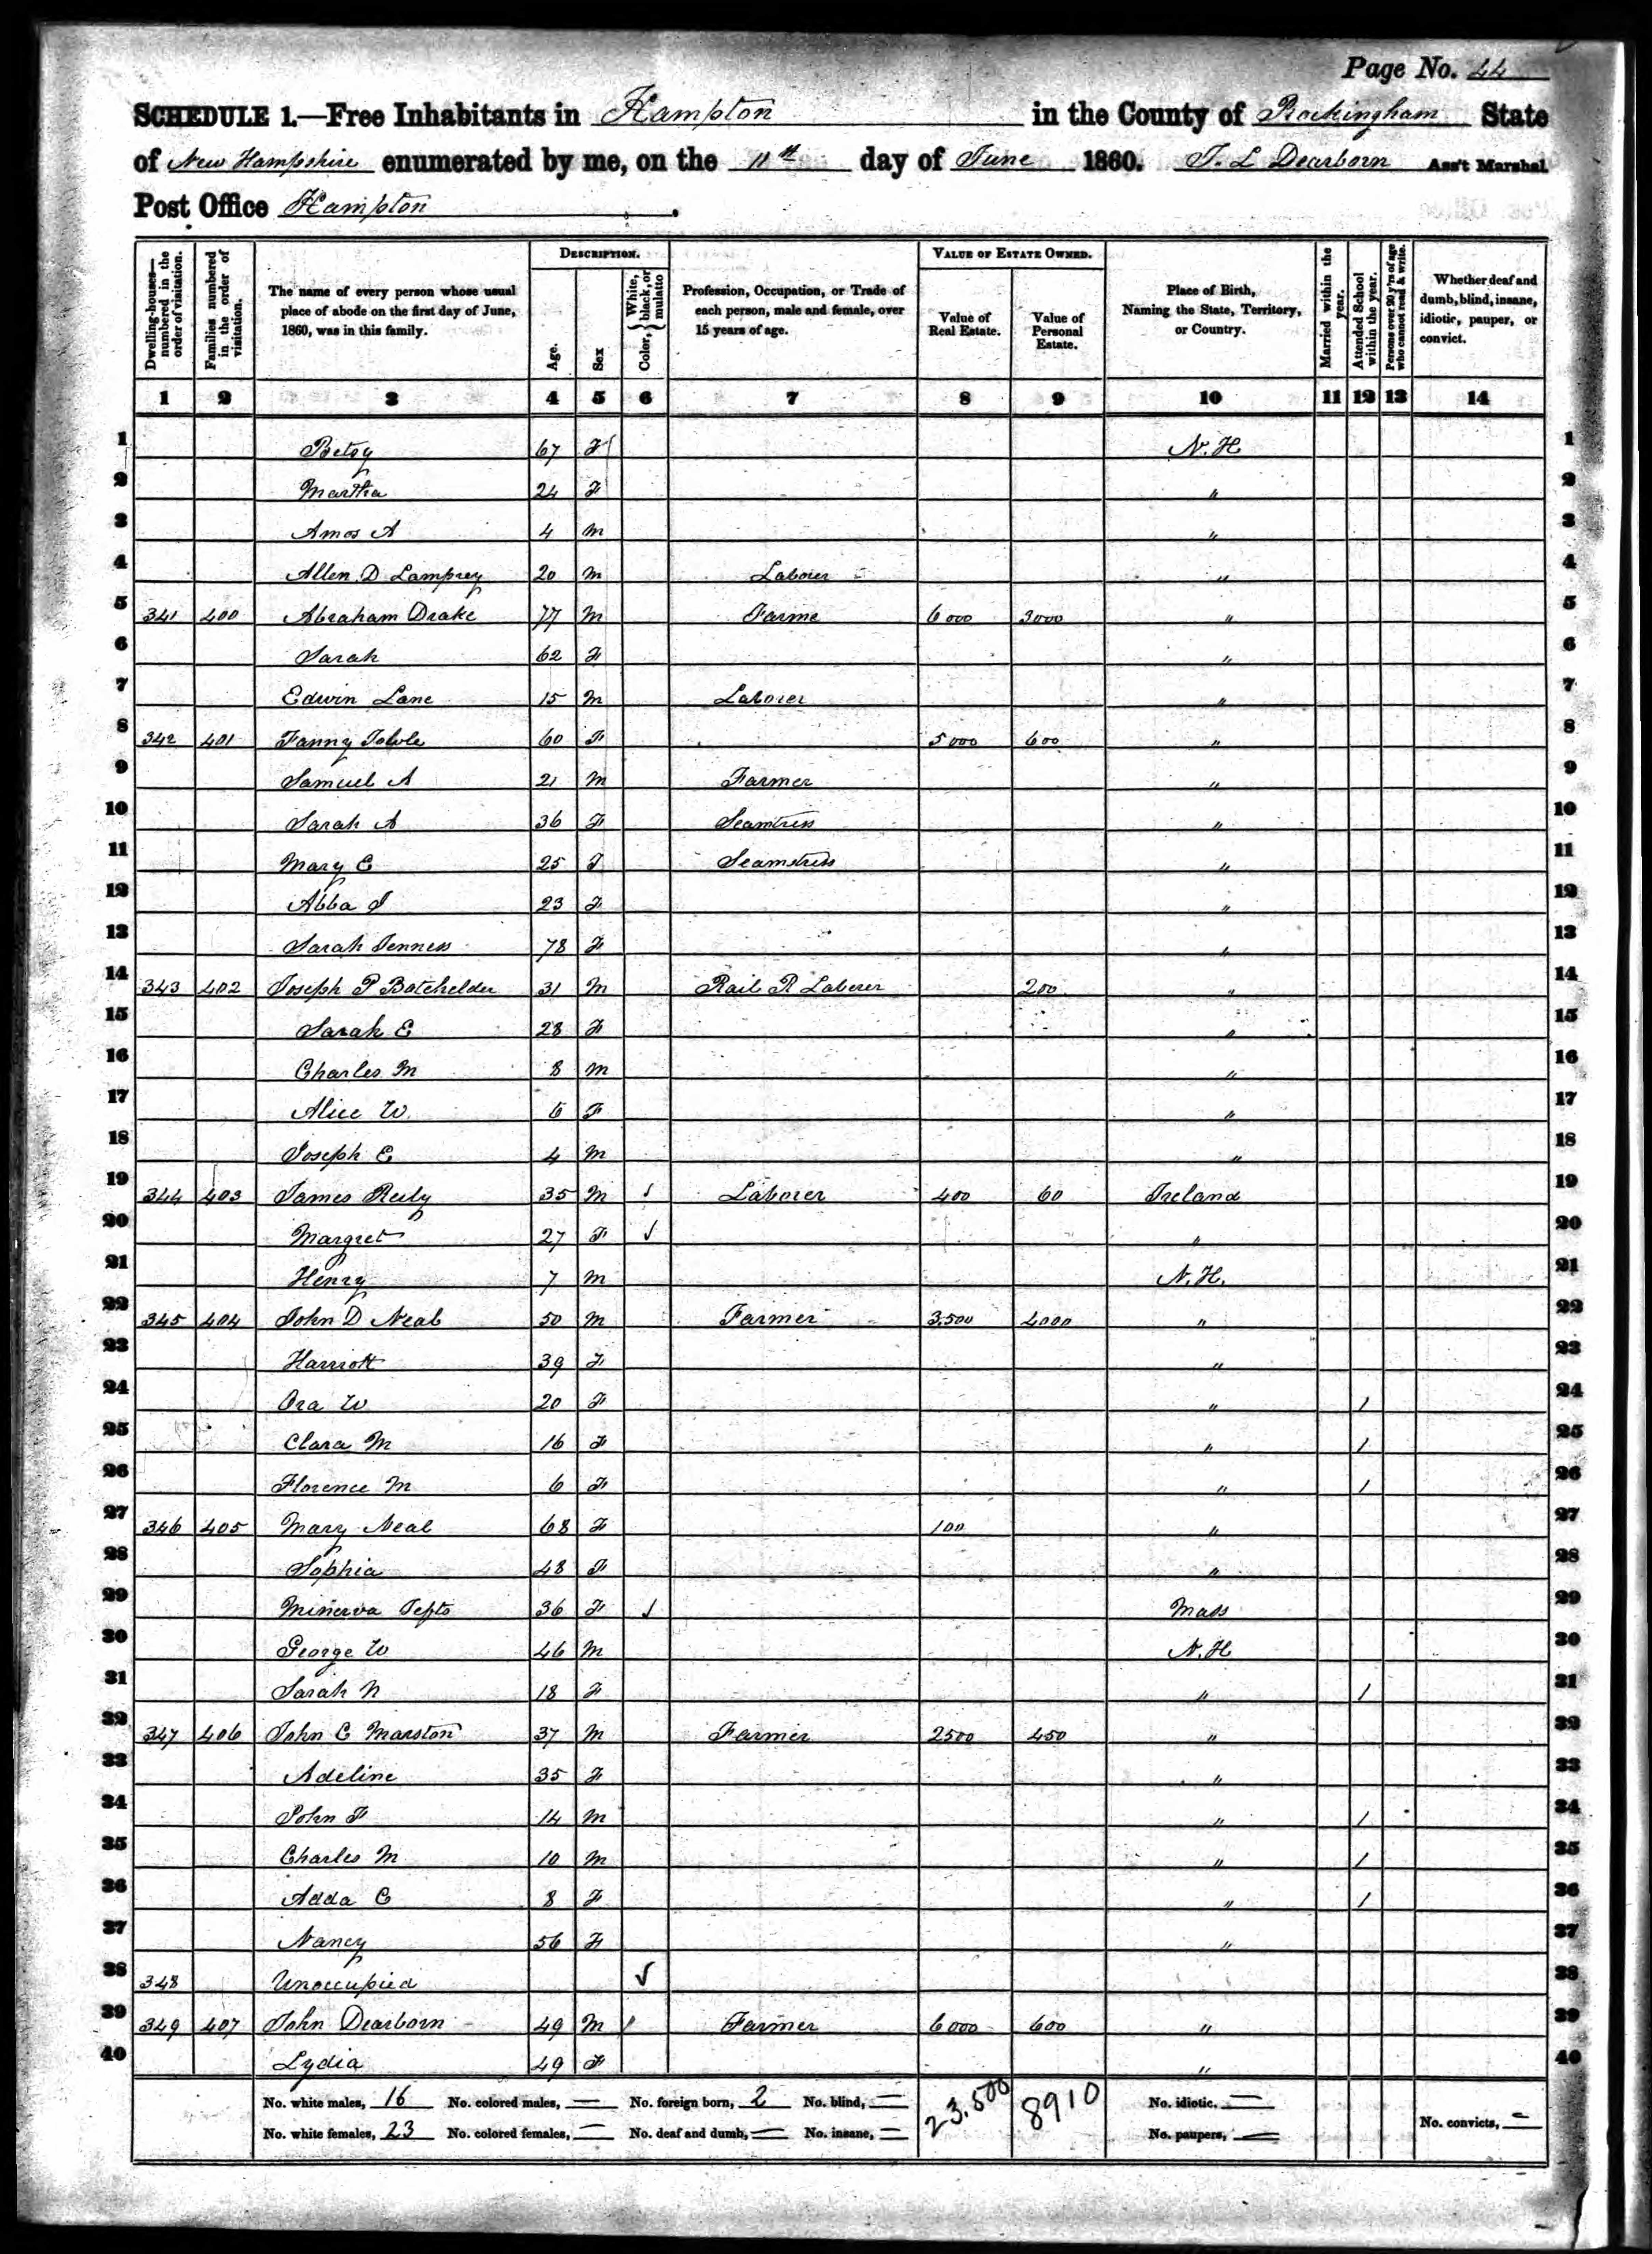 Page No. 44
SCHEDULE 1.—Free Inhabitants in Hampton in the County of Rockingham State
of New Hampshire enumerated by me, on the 11th day of June 1860. J. L Dearborn Ass't Marshal.
Post Office Hampton.
Dwelling-houses—numbered in the order of visitation. Families numbered in the order of visitation. The name of every person whose usual place of abode on the first day of June, 1860, was in this family. DESCRIPTION. Age. Sex Color, White, black, or mulatto Profession, Occupation, or Trade of each person, male and female, over 15 years of age. VALUE OF ESTATE OWNED. Value of Real Estate. Value of Personal Estate. Place of Birth, Naming the State, Territory, or Country. Married within the year. Attended School within the year. Persons over 20 y'rs of age who cannot read & write. Whether deaf and dumb, blind, insane, idiotic, pauper, or convict.
1 2 3 4 5 6 7 8 9 10 11 12 13 14
1 Betsy 67 F N.H 1
2 Martha 24 F " 2
3 Amos A 4 M " 3
4 Allen D Lamprey 20 M Laborer " 4
5 341 400 Abraham Drake 77 M Farme 6000 3000 " 5
6 Sarah 62 F " 6
7 Edwin Lane 15 M Laborer " 7
8 342 401 Fanny Towle 60 F 5000 600 " 8
9 Samuel A 21 M Farmer " 9
10 Sarah A 36 F Seamtress " 10
11 Mary E 25 F Seamstress " 11
12 Abba J 23 F " 12
13 Sarah Jenness 78 F " 13
14 343 402 Joseph P Batchelder 31 M Rail R Laborer 200 " 14
15 Sarah E 28 F " 15
16 Charles M 8 M " 16
17 Alice W. 6 F " 17
18 Joseph E 4 M " 18
19 344 403 James Reily 35 M √ Laborer 400 60 Ireland 19
20 Margret 27 F √ " 20
21 Henry 7 M N.H. 21
22 345 404 John D Neal 50 M Farmer 3,500 4000 " 22
23 Harriott 39 F " 23
24 Ora W 20 F " / 24
25 Clara M 16 F " / 25
26 Florence M 6 F " / 26
27 346 405 Mary Neal 68 F 100 " 27
28 Sophia 48 F " 28
29 Minerva 36 F √ Mass 29
30 George W 46 M N.H 30
31 Sarah N 18 F " / 31
32 347 406 John C Marston 37 M Farmer 2500 450 " 32
33 Adeline 35 F " 33
34 John F 14 M " / 34
35 Charles M 10 M " / 35
36 Adda C 8 F " / 36
37 Nancy 56 F " 37
38 348 Unoccupied √ 38
39 349 407 John Dearborn 49 M / Farmer 6000 600 " 39
40 Lydia 49 F " 40
No. white males, 16 No. colored males, — No. foreign born, 2 No. blind, — 23,500 8910 No. idiotic. — No. convicts, —
No. white females, 23 No. colored females, — No. deaf and dumb, — No. insane, — No. paupers, —